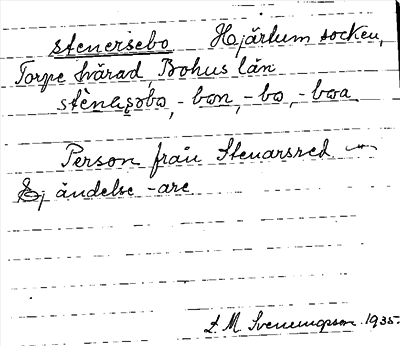 stenersebo Hjärtum socken,
Torpe härad, Bohus län
stènaʂəbo, -bon, -bo, -boa
Person från Stenarsred
Ej ändelse -are
L. M. Svenungsson 1935.